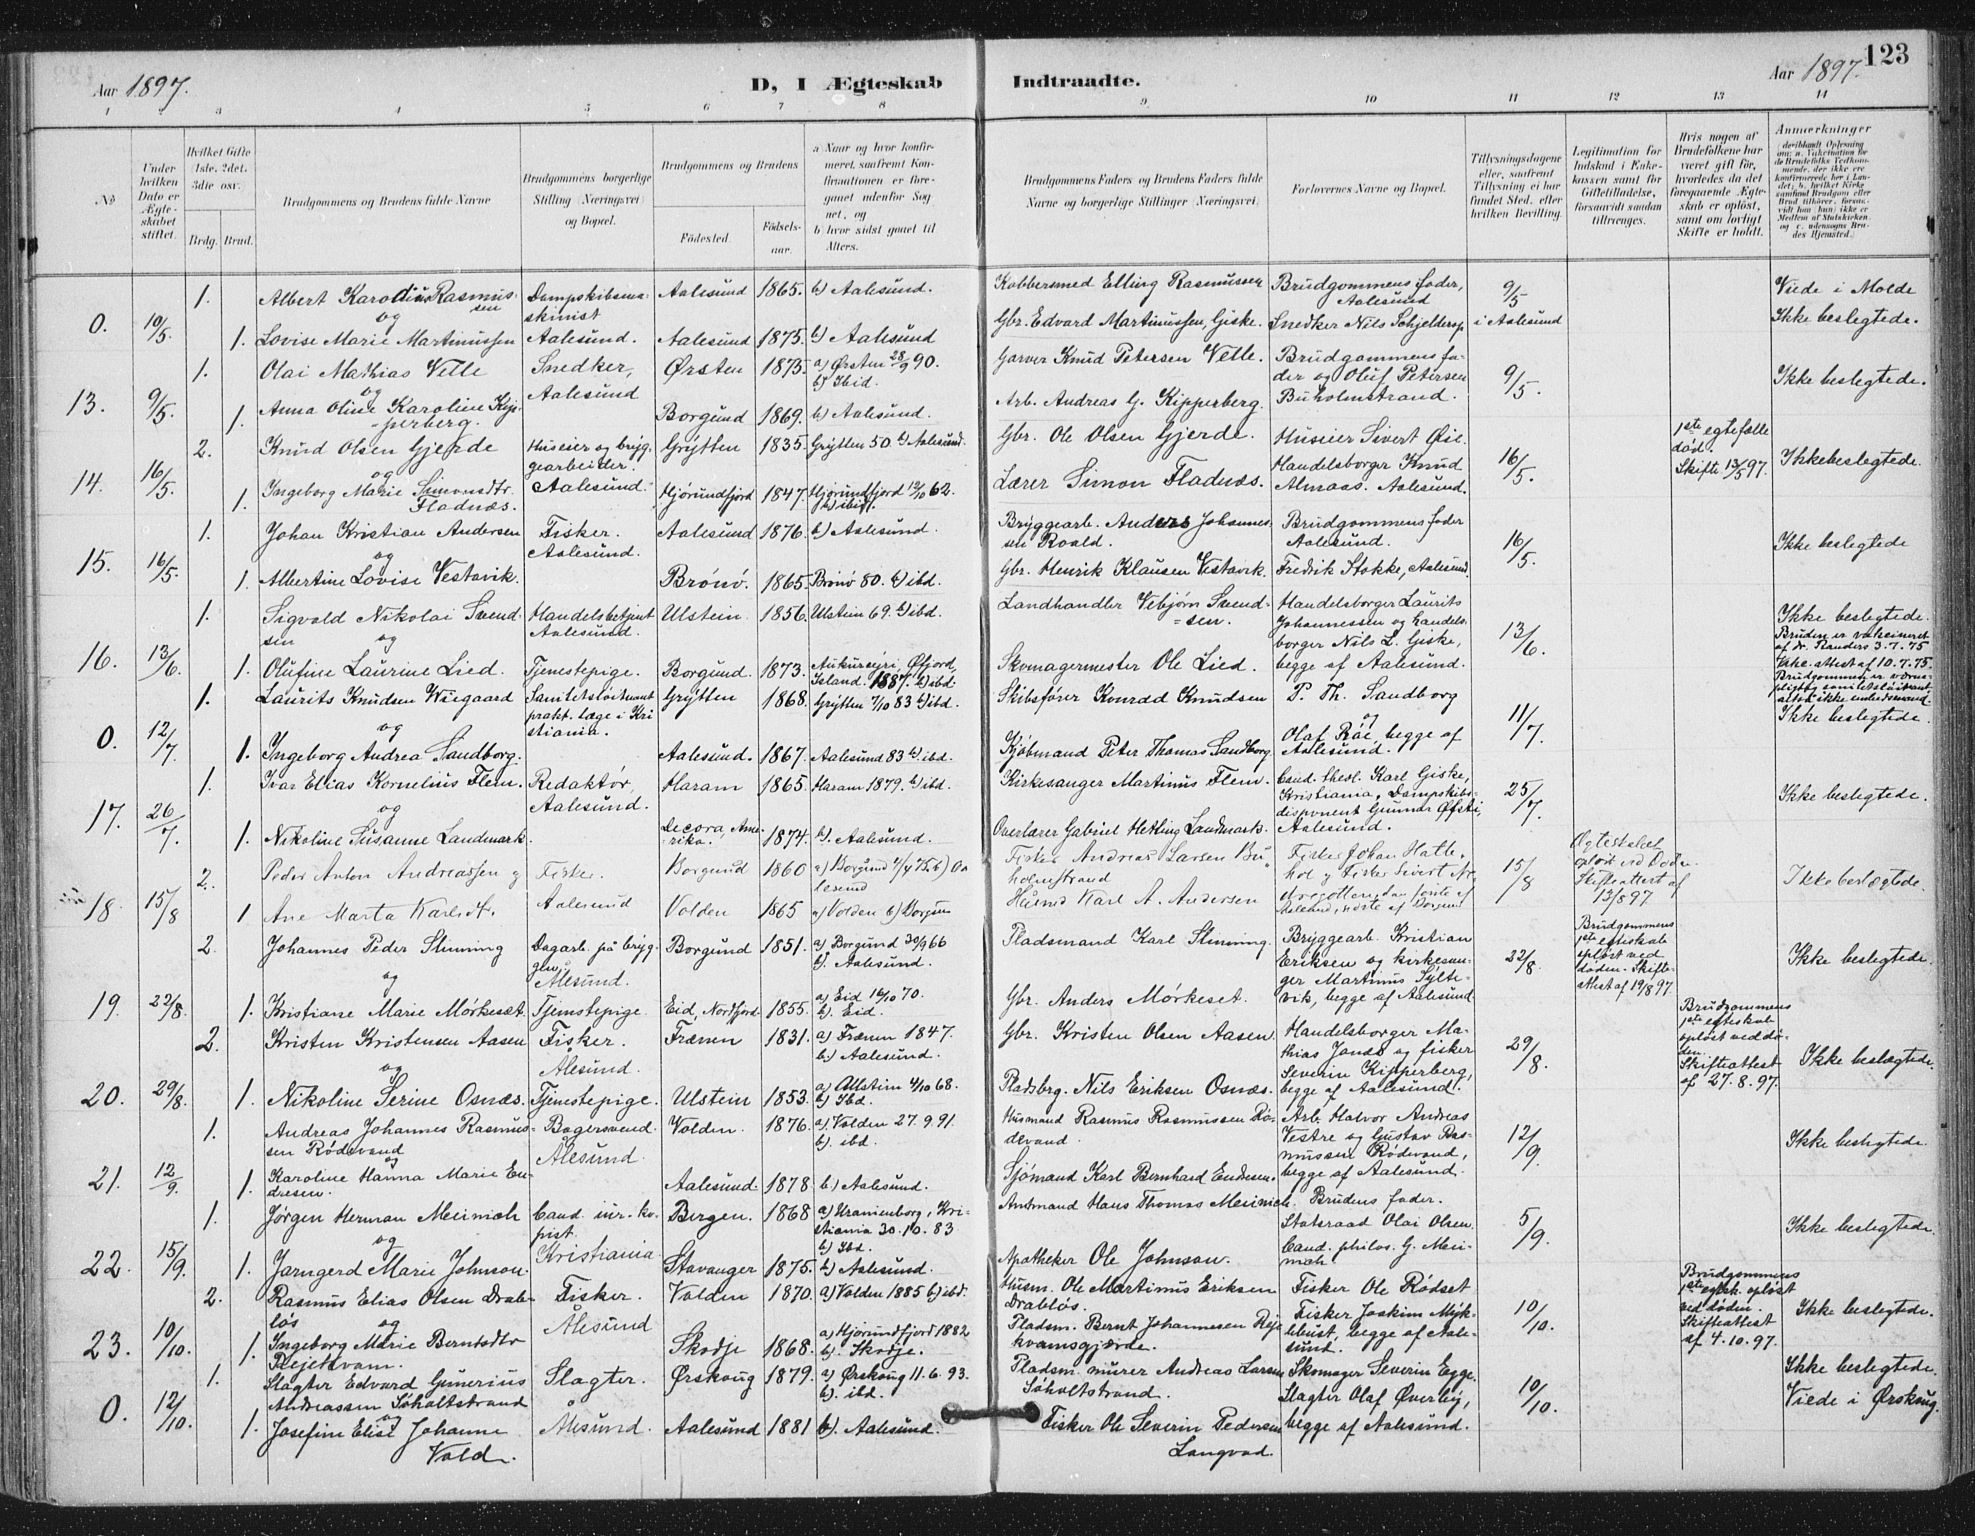 Aar 1897.
D, I Ægteskab
Indtraadte.
Aar 1897.
123
1 2 3 4 5 6 7 8
9 10 11 12 13 14
№
Under hvilken Dato er Ægteskabet stiftet.
Hvilket Gifte 1ste, 2det, 3die osv.
Brdg. Brud.
Brudgommens og Brudens fulde Navne
Brudgommens borgerlige Stilling (Næringsvei) og Bopæl.
Brudgommens og Brudens
Fødested.
Fødselsaar.
a Naar og hvor konfirmeret, saafremt Konfirmationen er foregaaet udenfor Sognet, og
b hvor sidst gaaet til Alters.
Brudgommens Faders og Brudens Faders fulde Navne og borgerlige Stillinger (Næringsvei).
Forlovernes Navne og Bopæl.
Tillysningsdagene eller, saafremt Tillysning ei har fundet Sted, efter hvilken Bevilling.
Legitimation for Indskud i Enkekassen samt for Giftetilladelse, forsaavidt saadan tiltrænges.
Hvis nogen af Brudefolkene har været gift før, hvorledes da det foregaaende Ægteskab er opløst, samt om lovligt Skifte er holdt.
Anmærkninger
0. 10/5
1. Albert Karolius Rasmussen
og
1. Lovise Marie Martinussen
Dampskibsmaskinist
Aalesund.
Aalesund 1865. b) Aalesund.
Aalesund 1875. b) Aalesund
Kobbersmed Elling Rasmussen
Gbr. Edvard Martinussen, Giske.
Brudgommens fader, Aalesund
Snedker Nils Schjelderup
9/5 i Aalesund
Viede i Molde
Ikke beslegtede.
13. 9/5.
1. Olai Mathias Velle
og
1. Anna Oline Karoline Kipperberg.
Snedker,
Aalesund
Ørsten 1875. a) Ørsten 28/9 90. b) Ibid.
Borgund 1869. b) Aalesund.
Garver Knud Petersen Velle.
Arb. Andreas G. Kipperberg.
Brudgommens fader og Oluf Petersen Buholmstrand.
9/5.
Ikke beslegtede.
14. 16/5.
2. Knud Olsen Gjerde
og
1. Ingeborg Marie Simonsdtr. Fladnæs.
Huseier og bryggearbeider.
Aalesund.
Grytten 1835. Grytten 50. b) Aalesund.
Hjørundfjord 1847. Hjørundfjord 12/10 62. b) ibid.
Gbr. Ole Olsen Gjerde.
Lærer Simon Fladnæs.
Huseier Sivert Øie.
Handelsborger Knud Almaas. Aalesund.
16/5.
1ste egtefælle død. Skifte 13/5 97.
Ikke beslegtede.
15. 16/5.
1. Johan Kristian Andersen
og
1. Albertine Lovise Vestavik.
Fisker.
Aalesund.
Aalesund 1876. b) Aalesund.
Brønø. 1865. Brønø 80. b) ibd.
Bryggearb. Anders Johannessen Roald.
Gbr. Henrik Klausen Vestavik.
Brudgommens fader Aalesund.
Fredrik Stokke, Aalesund.
16/5.
Ikke beslegtede
16. 13/6.
1. Sigvald Nikolai Svendsen
og
1. Olufine Laurine Lied.
Handelsbetjent Aalesund.
Tjenestepige.
Ulstein 1856. Ulstein 69. b) ibd.
Borgund. 1873. Øfjord, Island. 1887. b) ibd.
Landhandler Vebjørn Svendsen.
Skomagermester Ole Lied.
Handelsborger Laurits Johannessen og handelsborger Nils L. Giske, begge af Aalesund.
13/6.
Ikke beslegtede.
Bruden er vakcineret
0. 12/7.
1. Laurits Knudsen Wiegaard
og
1. Ingeborg Andrea Sandborg.
Sanitetsløitnant prakt. læge i Kristiania.
Grytten 1868. Grytten 7/10 83 b) ibd.
Aalesund. 1867. Aalesund 83 b) ibd.
Skibsfører Konrad Knudsen
Kjøbmand Peter Thomas Sandborg
P. Th. Sandborg
og
Olaf Røe, begge af Aalesund.
11/7.
Ikke beslegtede.
17. 26/7.
1. Ivar Elias Kornelius Flem.
og
1. Nikoline Susanne Landmark.
Redaktør,
Aalesund.
Haram 1865. Haram 1879. b) ibd.
Decora, Amerika. 1874. b). Aalesund.
Kirkesanger Martinus Flem.
Overlærer Gabriel Hetting Landmark.
Cand. theol. Karl Giske, Kristiania, Dampskibsdisponent Gunnar Øfsti, Aalesund.
25/7.
Ikke beslegtede.
18. 15/8
2. Peder Anton Andreassen og
1 Ane Marta Karlsdt.
Fisker.
Aalesund
Borgund 1860 a) Borgund 7/4 75. b) Aalesund
Volden 1865 a) Volden b) Borgund
Fisker Andreas Larsen Buholmstrand
Husmd Karl A. Andersen
Fisker Johan Hatlehol og Fisker Sivert
15/8
Ægteskabet opløst ved Døden. Skifteattest af 13/8 97
Ikke beslægtede.
19. 22/8.
2. Johannes Peder Slinning
og
1. Kristiane Marie Mørkeset.
Dagarb. på bryggen,
Ålesund.
Tjenestepige.
Borgund 1851. a) Borgund 30/9 66 b). Aalesund.
Eid, Nordfjord. 1855. a) Eid 16/10 70. b). Eid.
Pladsmand Karl Slinning.
Gbr. Anders Mørkeset.
Bryggearb. Kristian Eriksen og kirkesanger Martinus Syltevik, begge af Aalesund.
22/8.
Brudgommens 1ste egteskab opløst ved døden. Skifteattest af 19/8 97
Ikke beslegtede.
20. 29/8.
2. Kristen Kristensen Aasen
og
1. Nikoline Serine Osnæs.
Fisker.
Ålesund.
Tjenestepige.
Frænen 1831. a) Frænen 1847. b). Aalesund.
Ulstein 1853. a) Ulstein 4/10 68. b) Ibd.
Gbr. Kristen Olsen Aasen.
Pladsbrg. Nils Eriksen Osnæs.
Handelsborger Mathias Jangs og fisker Severin Kipperberg, begge af Aalesund.
29/8.
Brudgommens 1ste egteskab opløst ved døden. Skifteattest af 27.8.97.
Ikke beslægtede.
21. 12/9.
1. Andreas Johannes Rasmussen Rødsvand
og
1. Karoline Hanna Marie Endresen.
Bagersvend.
Ålesund.
Volden. 1876. a) Volden 27.9.91. b). ibd.
Aalesund. 1878. b.) Aalesund.
Husmand Rasmus Rasmussen Rødevand.
Sjømand Karl Bernhard Endresen.
Arb. Halvor Andreas Vestre og Gustav Rasmussen Rødevand, begge af Aalesund.
12/9.
Ikke beslegtede.
22. 15/9.
1. Jørgen Herman Meinich
og
1. Jarngerd Marie Johnson.
Cand. jur. kopist.
Kristiania
Bergen. 1868 a) Uranienborg, Kristiania 30.10.83 b) Ibd.
Stavanger 1875. b) Aalesund.
Amtmand Hans Thomas Meinich.
Apotheker Ole Johnson.
Brudens fader.
Statsraad Olai Olsen.
Cand. philos. G. Meinich.
5/9.
Ikke beslegtede.
23. 10/10.
2. Rasmus Elias Olsen Drabløs
og
1. Ingeborg Marie Berntsdtr Rejekvam.
Fisker.
Ålesund
Volden 1870. a) Volden 1885 b) ibd.
Skodje 1868. a) Hjørundfjord 1882 b). Skodje.
Husm. Ole Martinus Eriksen Drabløs.
Pladsm. Bernt Johannesen Rejekvamsgjærde.
Fisker Ole Rødset
Fisker Joakim Myklebust, begge af Aalesund.
10/10.
Brudgommens 1ste egtsk. opløst ved døden. Skifteattest af 4.10.97.
Ikke beslegtede.
0. 12/10.
1. Slagter Edvard Gunerius Andreassen Søholtstrand
og
1. Josefine Elise Johanne Vold.
Slagter.
Ålesund.
Ørskoug 1879. a) Ørskoug 11.6.93. b). ibd.
Aalesund 1881 b). Aalesund.
Pladsm. murer Andreas Larsen Søholtstrand.
Fisker Ole Severin Pedersen Langvad.
Skomager Severin Egge.
Slagter Olaf Øverby, begge af Aalesund.
10/10.
Ikke beslegtede.
Viede i Ørskoug.